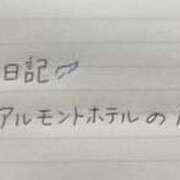 日記
アルモントホテルの